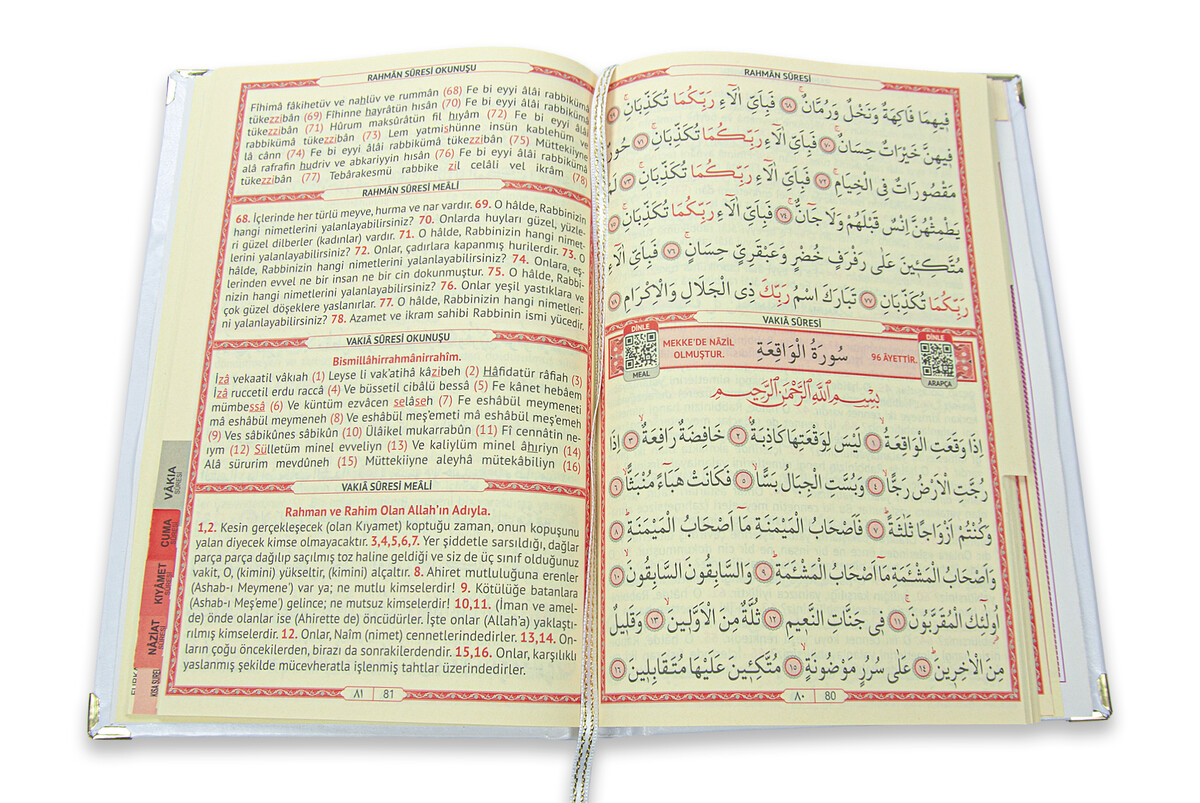 RAHMÂN SÛRESİ
فِيهِمَا فَاكِهَةٌ وَنَخْلٌ وَرُمَّانٌۚ ﴿٦٨﴾ فَبِاَيِّ اٰلَٓاءِ رَبِّكُمَا تُكَذِّبَانِۚ ﴿٦٩﴾
فِيهِنَّ خَيْرَاتٌ حِسَانٌۚ ﴿٧٠﴾ فَبِاَيِّ اٰلَٓاءِ رَبِّكُمَا تُكَذِّبَانِۚ ﴿٧١﴾ حُورٌ
مَقْصُورَاتٌ فِي الْخِيَامِۚ ﴿٧٢﴾ فَبِاَيِّ اٰلَٓاءِ رَبِّكُمَا تُكَذِّبَانِۚ ﴿٧٣﴾ لَمْ
يَطْمِثْهُنَّ اِنْسٌ قَبْلَهُمْ وَلَا جَٓانٌّۚ ﴿٧٤﴾ فَبِاَيِّ اٰلَٓاءِ رَبِّكُمَا تُكَذِّبَانِۚ ﴿٧٥﴾
مُتَّكِـِٔينَ عَلٰى رَفْرَفٍ خُضْرٍ وَعَبْقَرِيٍّ حِسَانٍۚ ﴿٧٦﴾ فَبِاَيِّ اٰلَٓاءِ
رَبِّكُمَا تُكَذِّبَانِ ﴿٧٧﴾ تَبَارَكَ اسْمُ رَبِّكَ ذِي الْجَلَالِ وَالْاِكْرَامِ ﴿٧٨﴾
VAKIÂ SÛRESİ
DİNLE
MEAL
MEKKE'DE NÂZİL
OLMUŞTUR.
سُورَةُ الْوَاقِعَةِ
96 ÂYETTİR.
DİNLE
ARAPÇA
بِسْمِ اللّٰهِ الرَّحْمٰنِ الرَّحِيمِ
اِذَا وَقَعَتِ الْوَاقِعَةُۙ ﴿١﴾ لَيْسَ لِوَقْعَتِهَا كَاذِبَةٌۢ ﴿٢﴾ خَافِضَةٌ رَافِعَةٌۙ ﴿٣﴾ اِذَا
رُجَّتِ الْاَرْضُ رَجًّاۙ ﴿٤﴾ وَبُسَّتِ الْجِبَالُ بَسًّاۙ ﴿٥﴾ فَكَانَتْ هَبَٓاءً مُنْبَثًّاۙ ﴿٦﴾
وَكُنْتُمْ اَزْوَاجًا ثَلٰثَةًۜ ﴿٧﴾ فَاَصْحَابُ الْمَيْمَنَةِ مَٓا اَصْحَابُ الْمَيْمَنَةِۜ ﴿٨﴾
وَاَصْحَابُ الْمَشْـَٔمَةِ مَٓا اَصْحَابُ الْمَشْـَٔمَةِۜ ﴿٩﴾ وَالسَّابِقُونَ السَّابِقُونَۙ ﴿١٠﴾
اُولٰٓئِكَ الْمُقَرَّبُونَۚ ﴿١١﴾ فِي جَنَّاتِ النَّعِيمِ ﴿١٢﴾ ثُلَّةٌ مِنَ الْاَوَّلِينَۙ ﴿١٣﴾ وَقَلِيلٌ
مِنَ الْاٰخِرِينَۜ ﴿١٤﴾ عَلٰى سُرُرٍ مَوْضُونَةٍۙ ﴿١٥﴾ مُتَّكِـِٔينَ عَلَيْهَا مُتَقَابِلِينَ ﴿١٦﴾
٨٠ 80
RAHMÂN SÛRESİ OKUNUŞU
Fîhimâ fâkihetüv ve nahlüv ve rummân (68) Fe bi eyyi âlâi rabbikümâ
tükezzibân (69) Fîhinne hayrâtün hısân (70) Fe bi eyyi âlâi
rabbikümâ tükezzibân (71) Hûrum maksûrâtün fil hıyâm (72) Fe bi eyyi âlâi
rabbikümâ tükezzibân (73) Lem yatmishünne insün kablehüm ve
lâ cânn (74) Fe bi eyyi âlâi rabbikümâ tükezzibân (75) Müttekiîyne
alâ rafrafin hudriv ve abkariyyin hısân (76) Fe bi eyyi âlâi rabbikümâ
tükezzibân (77) Tebârakesmü rabbike zil celâli vel ikrâm (78)
RAHMÂN SÛRESİ MEÂLİ
68. İçlerinde her türlü meyve, hurma ve nar vardır. 69. O hâlde, Rabbinizin
hangi nimetlerini yalanlayabilirsiniz? 70. Onlarda huyları güzel, yüzle-
ri güzel dilberler (kadınlar) vardır. 71. O hâlde, Rabbinizin hangi nimet-
lerini yalanlayabilirsiniz? 72. Onlar, çadırlara kapanmış hurilerdir. 73. O
hâlde, Rabbinizin hangi nimetlerini yalanlayabilirsiniz? 74. Onlara, eş-
lerinden evvel ne bir insan ne bir cin dokunmuştur. 75. O hâlde, Rabbi-
nizin hangi nimetlerini yalanlayabilirsiniz? 76. Onlar yeşil yastıklara ve
çok güzel döşeklere yaslanırlar. 77. O hâlde, Rabbinizin hangi nimetleri-
ni yalanlayabilirsiniz? 78. Azamet ve ikram sahibi Rabbinin ismi yücedir.
VAKIÂ SÛRESİ OKUNUŞU
Bismillâhirrahmânirrahîm.
İzâ vekaatil vâkıah (1) Leyse li vak'atihâ kâzibeh (2) Hâfidatür râfiah (3)
İzâ ruccetil erdu raccâ (4) Ve büssetil cibâlü bessâ (5) Fe kânet hebâem
mümbessâ (6) Ve küntüm ezvâcen selâseh (7) Fe eshâbül meymeneti
mâ eshâbül meymeneh (8) Ve eshâbül meş'emeti mâ eshâbül meş'emeh
(9) Ves sâbikûnes sâbikûn (10) Ülâikel mukarrabûn (11) Fî cennâtin ne-
ıym (12) Sülletüm minel evveliyn (13) Ve kaliylüm minel âhıriyn (14)
Alâ sürurim mevdûneh (15) Müttekiiyne aleyhâ mütekâbiliyn (16)
VAKIÂ SÛRESİ MEÂLİ
Rahman ve Rahim Olan Allah'ın Adıyla.
1,2. Kesin gerçekleşecek (olan Kıyamet) koptuğu zaman, onun kopuşunu
yalan diyecek kimse olmayacaktır. 3,4,5,6,7. Yer şiddetle sarsıldığı, dağlar
parça parça dağılıp saçılmış toz haline geldiği ve siz de üç sınıf olduğunuz
vakit, O, (kimini) yükseltir, (kimini) alçaltır. 8. Ahiret mutluluğuna erenler
(Ashab-ı Meymene') var ya; ne mutlu kimselerdir! 9. Kötülüğe batanlara
(Ashab-ı Meş'eme') gelince; ne mutsuz kimselerdir! 10,11. (İman ve amel-
de) önde olanlar ise (Ahirette de) öncüdürler. İşte onlar (Allah'a) yaklaştı-
rılmış kimselerdir. 12. Onlar, Naîm (nimet) cennetlerindedirler. 13,14. On-
ların çoğu öncekilerden, birazı da sonrakilerdendir. 15,16. Onlar, karşılıklı
yaslanmış şekilde mücevheratla işlenmiş tahtlar üzerindedirler.
٨١ 81
VÂKIA
SÛRESİ
CUMA
SÛRESİ
KIYÂMET
SÛRESİ
NÂZİÂT
SÛRESİ